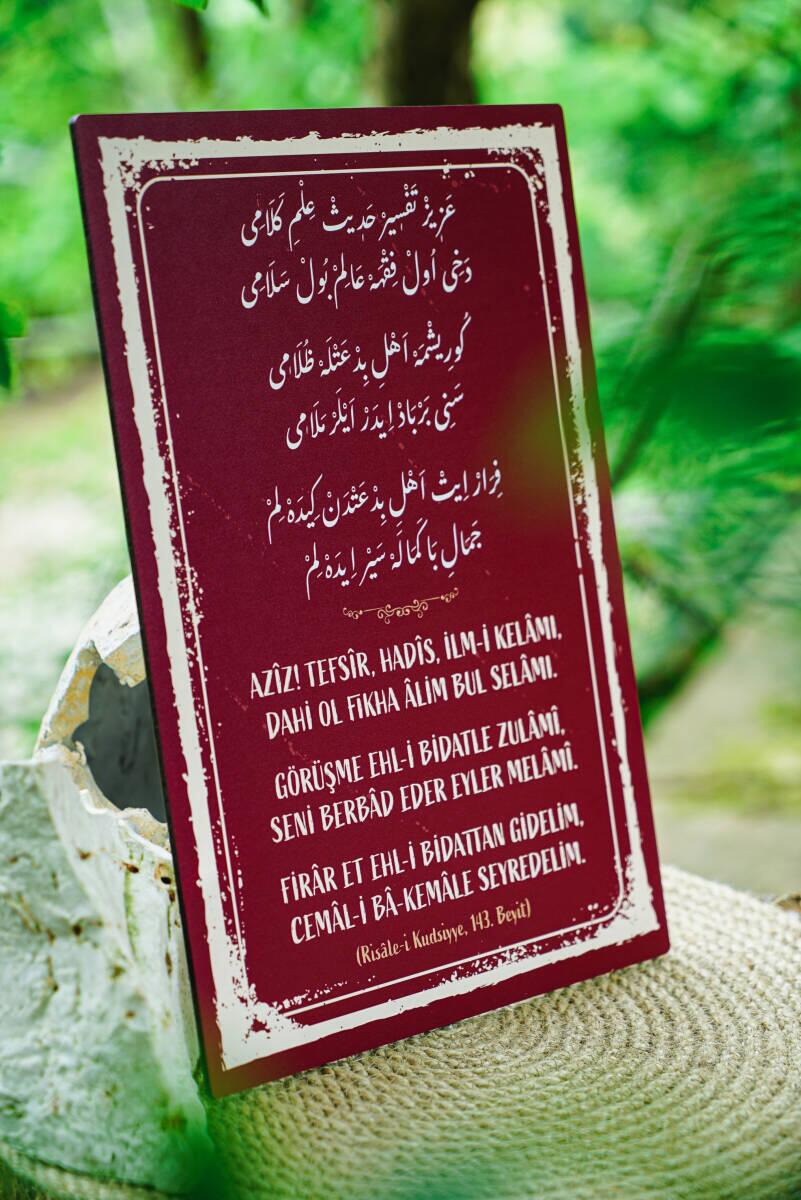 عَزِيزْ تَفْسِيرْ حَدِيثْ عِلْمِ كَلَامِى
دَخِى اُولْ فِقْهَهْ عَالِمْ بُولْ سَلَامِى
كُورِيشْمَهْ اَهْلِ بِدْعَتْلَهْ ظُلَامِى
سَنِى بَرْبَادْ اِيدَرْ اَيْلَرْ مَلَامِى
فِرَارْ اِيتْ اَهْلِ بِدْعَتْدَنْ كِيدَهْ لِمْ
جَمَالِ بَا كَمَالَهْ سَيْرْ اِيدَهْ لِمْ
AZÎZ! TEFSÎR, HADÎS, İLM-İ KELÂMI,
DAHİ OL FIKHA ÂLİM BUL SELÂMI.
GÖRÜŞME EHL-İ BİDATLE ZULÂMÎ,
SENİ BERBÂD EDER EYLER MELÂMÎ.
FİRÂR ET EHL-İ BİDATTAN GİDELİM,
CEMÂL-İ BÂ-KEMÂLE SEYREDELİM.
(Risâle-i Kudsiyye, 143. Beyit)